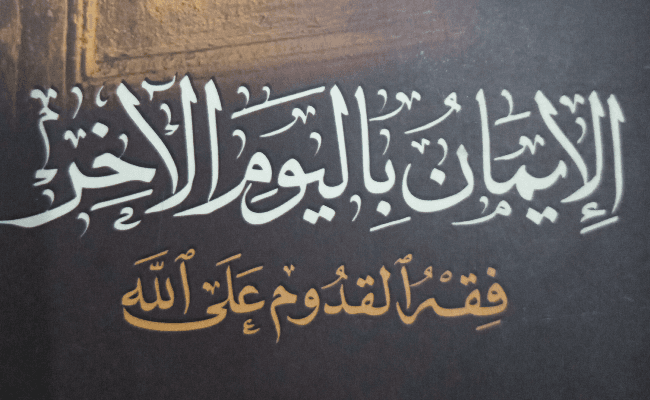 الإِيمَانُ بِاليَومِ الآخِرِ
فِقْهُ ٱلقدُومِ عَلَى ٱللَّه